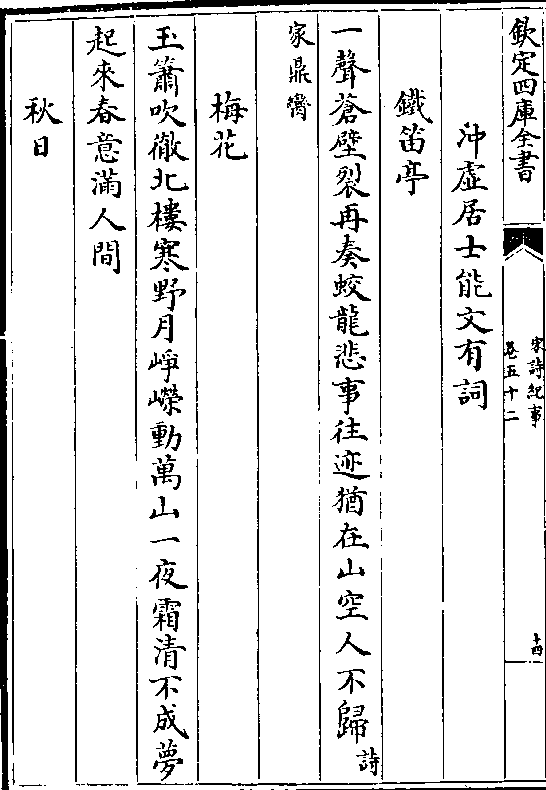 欽定四庫全書
宋詩紀事
卷五十二
十四
沖虛居士能文有詞
鐵笛亭
一聲蒼壁裂再奏蛟龍悲事往迹猶在山空人不歸詩
家鼎臠
梅花
玉簫吹徹北樓寒野月崢嶸動萬山一夜霜清不成夢
起來春意滿人間
秋日